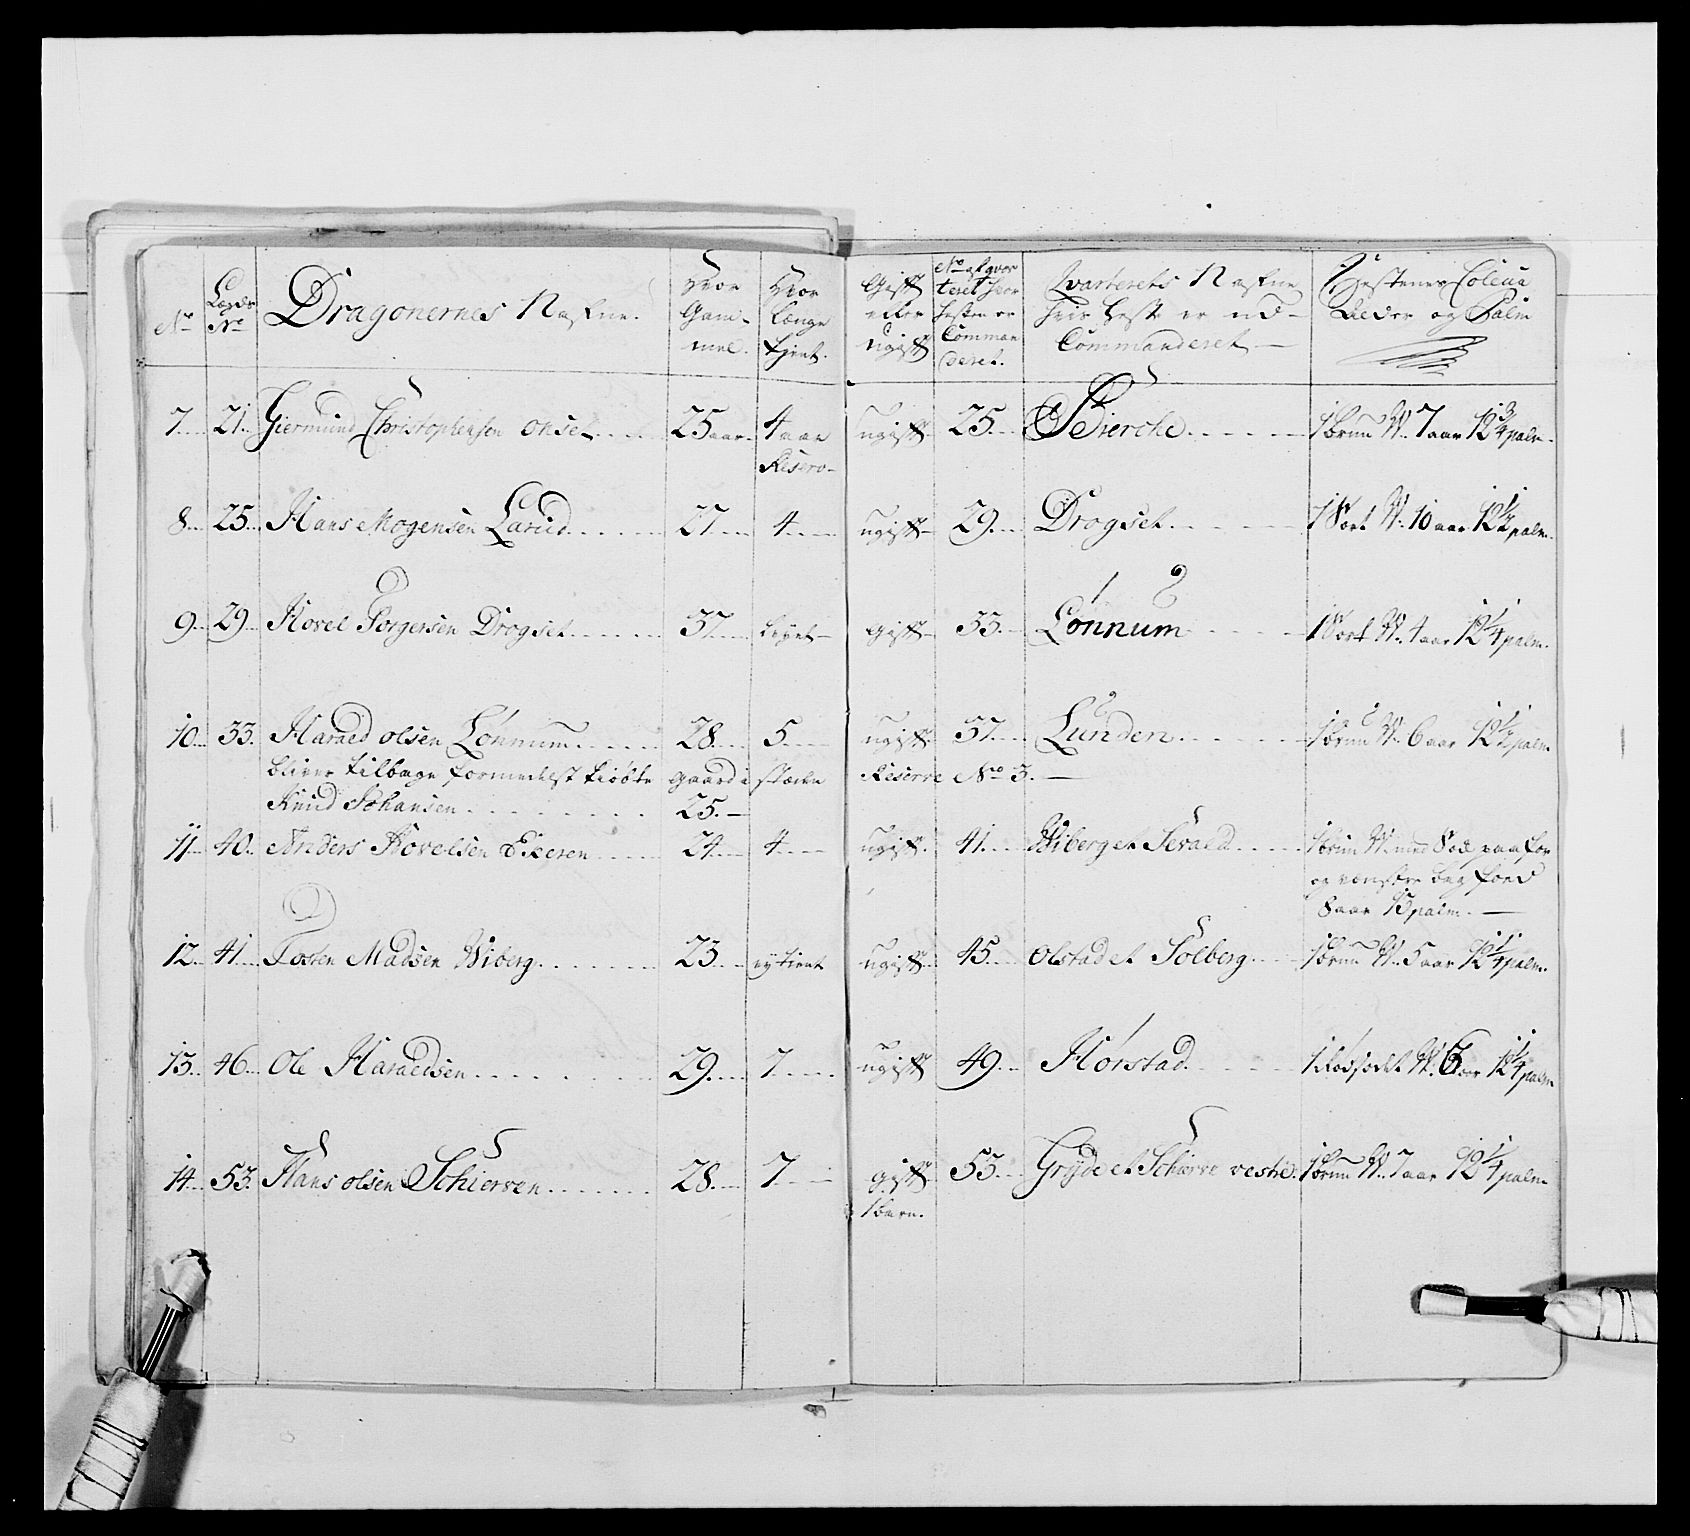 No Lægds No Dragonernes Nafne. Hvor Gammel. Hvor længe tient. Gift eller ugift No af qvarteret hvor hesten er Commanderet. Qvarterets Nafne hvis hest er ud Commanderet Hestenes Coleur Alder og Palm
7 21 Giermund Christophensen onset 25 aar 4 aar ugift 25 Bierche 1 brun W. 7 aar 12 3/4 palm
Reserv
8 25 Hans Mogensen Larud 27 4 ugift 29 Drogset 1 Sort W. 10 aar 12 1/2 palm
9 29 Hovel Torgersen Drogset 37 gift 33 Lönnum 1 Sort W. 4 aar 12 1/4 palm.
10 33. Haraed olsen Lönnum 28 5 ugift 37 Lunden 1 brun W. 6 aar 12 1/2 palm
bliver tilbage formedelst kiöbte gaard i stæden Reserve No 3.
Knud Johansen 25.
11 40 Anders Hovelsen Ekeren 24 4 ugift. 41 Wiberg et Sevald 1 brun W. med Sod paa for
og venstre bag foed
8 aar 13 palm.
12 41 Tosten Madsen Wiberg 23 ey tient ugift 45 olstad et Solberg 1 brun W. 5 aar 12 1/4 palm.
13 46 Ole Haraedsen 29 7 ugift 49 Hörstad 1 W. 6 aar 12 1/4 palm
14 53. Hans olsen Schierven 28 7 gift 53 Gryde et Schierve vestre. 1 brun W. 7 aar 12 1/4 palm
1 barn.